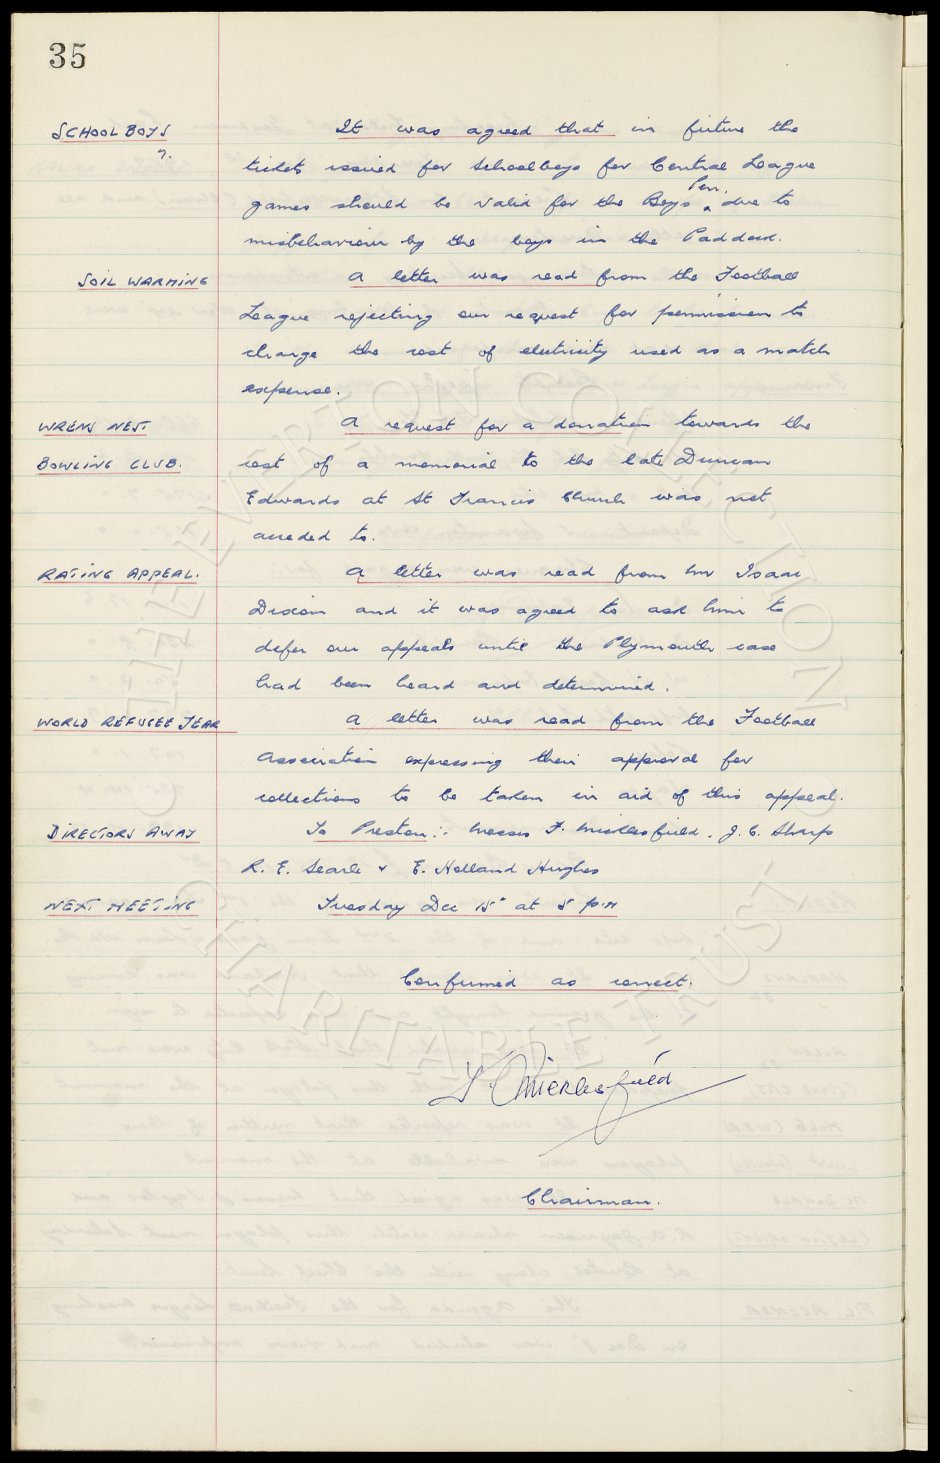 35
SCHOOL BOYS It was agreed that in future the
tickets issued for schoolboys for Central League
Pen.
games should be valid for the Boys ‸ due to
misbehaviour by the boys in the Paddock.
SOIL WARMING A letter was read from the Football
League rejecting our request for permission to
charge the cost of electricity used as a match
expense.
WRENS NEST A request for a donation towards the
BOWLING CLUB. cost of a memorial to the late Duncan
Edwards at St Francis Church was not
acceded to.
RATING APPEAL. A letter was read from Mr Isaac
Dixon and it was agreed to ask him to
defer our appeals until the Plymouth case
had been heard and determined.
WORLD REFUGEE YEAR A letter was read from the Football
Association expressing their approval for
collections to be taken in aid of this appeal.
DIRECTORS AWAY To Preston:- Messrs F. Micklesfield, J. C. Sharp
R. E. Searle & E. Holland Hughes
NEXT MEETING Tuesday Dec 15" at 5 p.m
Confirmed as correct.
F. Micklesfield
Chairman.
THE EVERTON COLLECTION
CHARITABLE TRUST